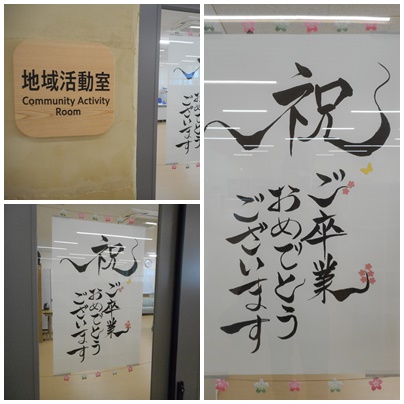 地域活動室
Community Activity
Room
祝
ご卒業
おめでとう
ございます
祝
ご卒業
おめでとう
ございます
おめでとう
ございます